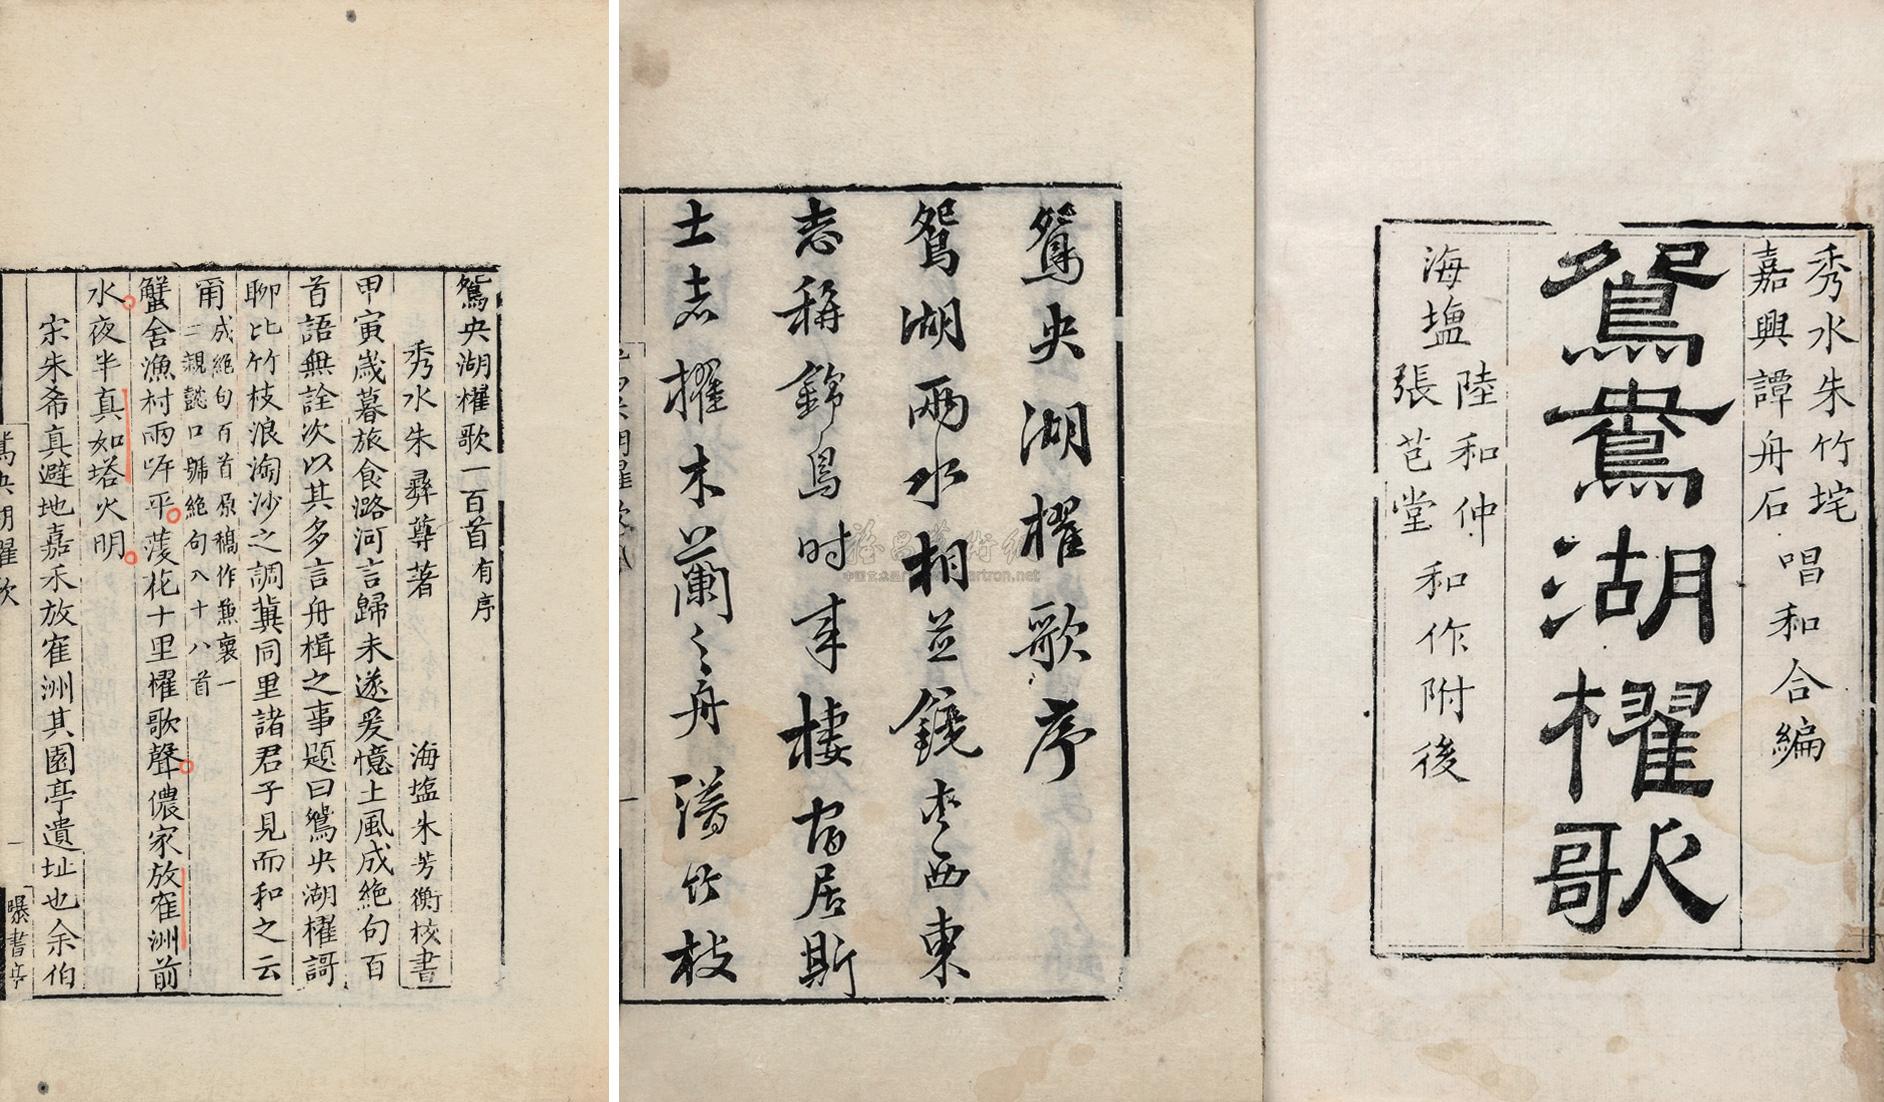 秀水朱竹垞
嘉興譚舟石
唱和合編
鴛鴦湖櫂歌
海塩
陸和仲
張芑堂
和作附後
鴛央湖櫂歌序
鴛湖兩水相並鏡西東
志稱錦鳥时來棲宿居斯
士志櫂木蘭之舟譜竹枝
鴛央湖櫂歌一百首有序
秀水朱彝尊著
海塩朱芳衡校書
甲寅歲暮旅食潞河言歸未遂爰憶土風成絶句百
首語無詮次以其多言舟楫之事題曰鴛央湖櫂謌
聊比竹枝浪淘沙之調冀同里諸君子見而和之云
爾
成絶句百首原稿作兼裏一
二親懿口號絶句八十八首
蟹舍漁村兩岸平菱花十里櫂歌聲儂家放隺洲前
水夜半真如塔火明
宋朱希真避地嘉禾放隺洲其園亭遺址也余伯
曝書亭